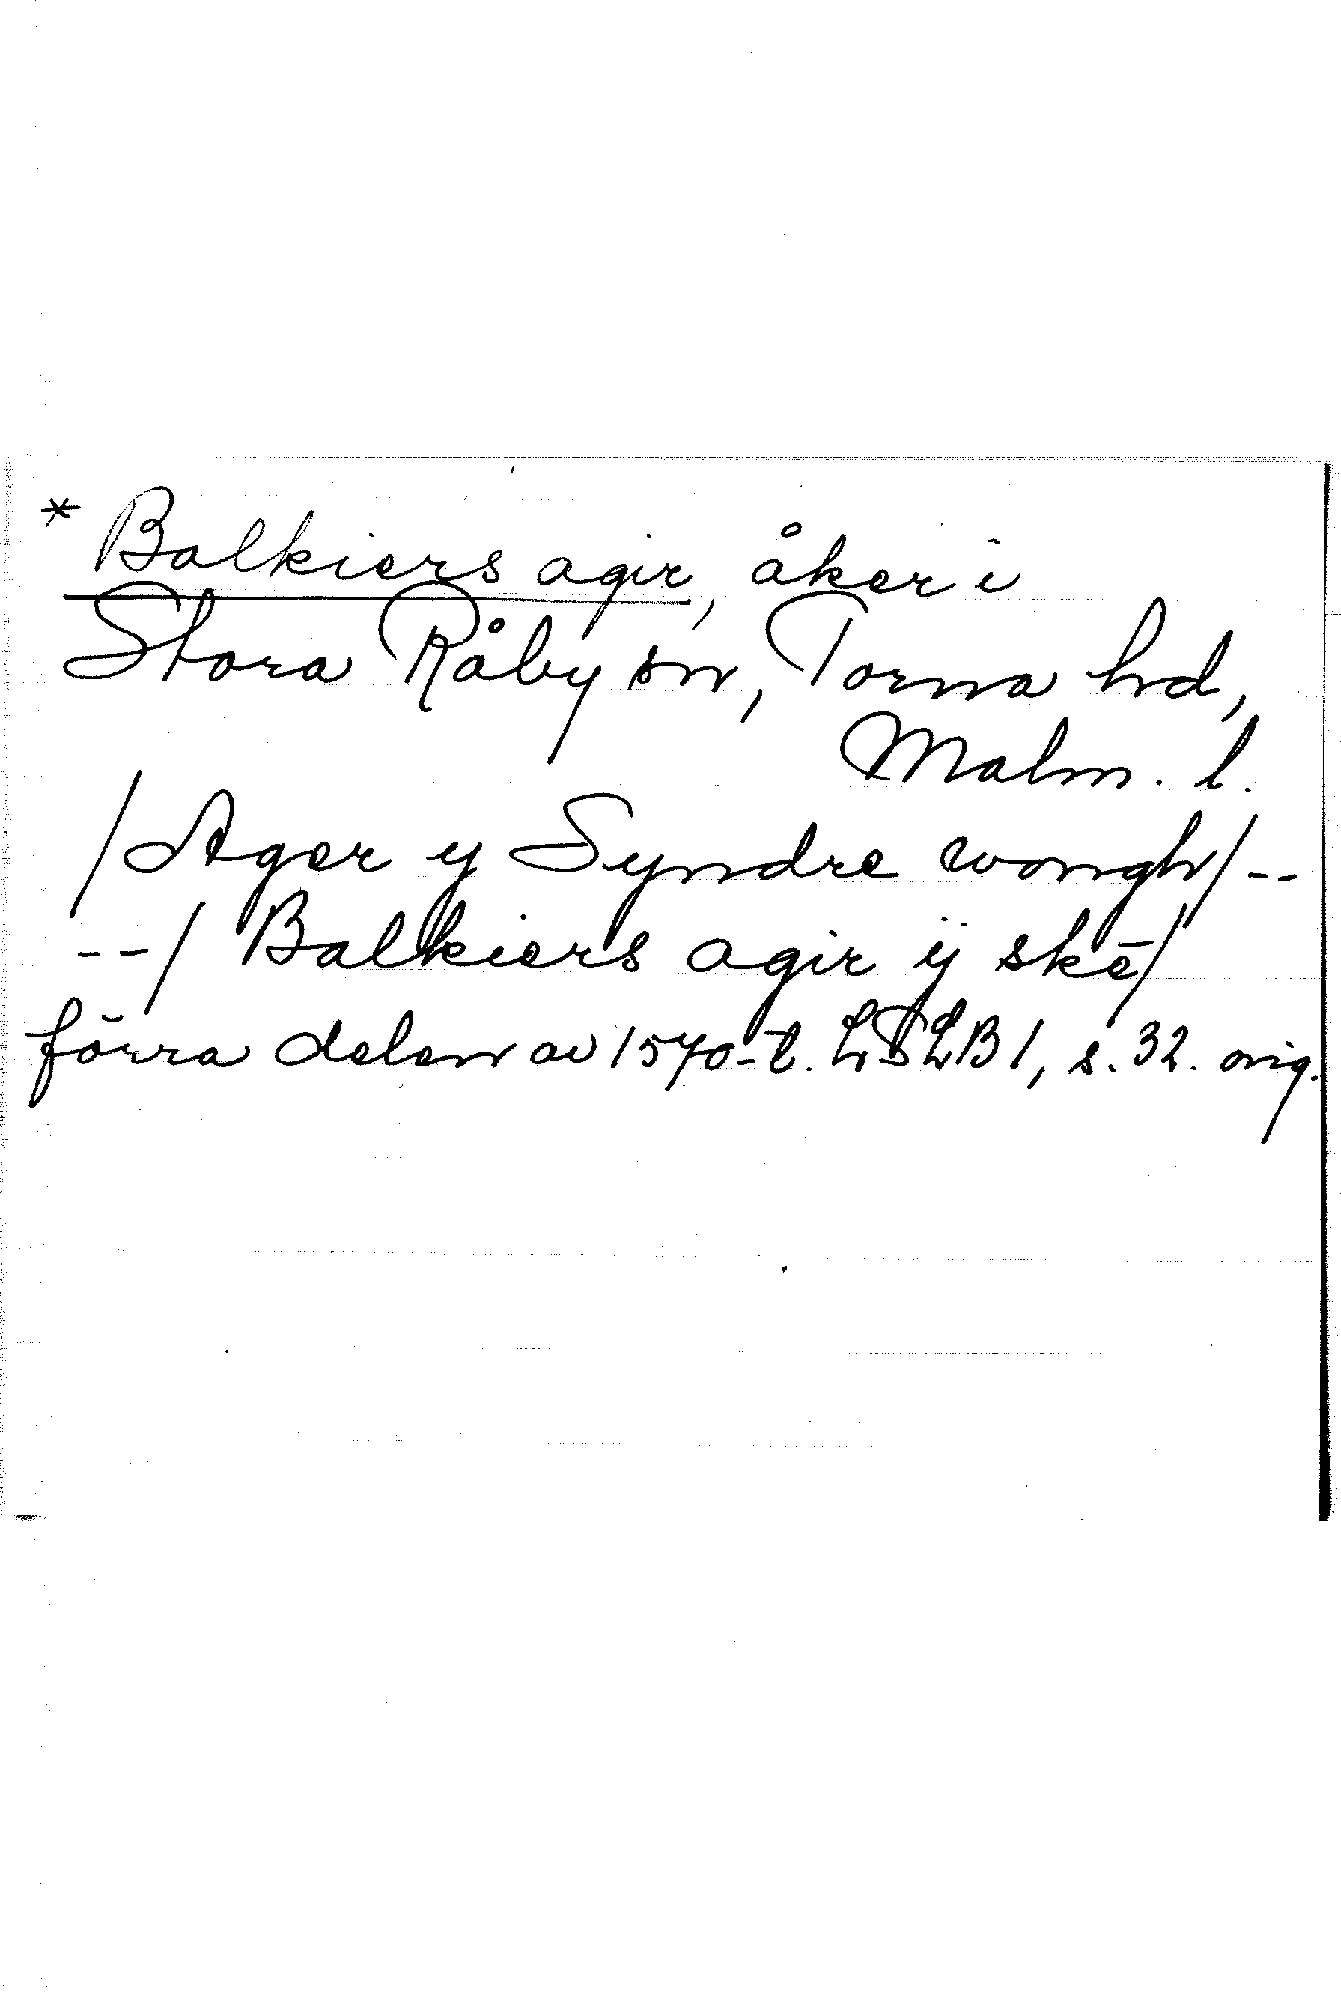 * Balkiers agir, åker i
Stora Råby sn, Torna hd,
Malm. l.
/Ager y Syndre wongh/--
--/ Balkiers agir ÿ skē/
förra delen av 1570-t. LSLB 1, s. 32. orig.